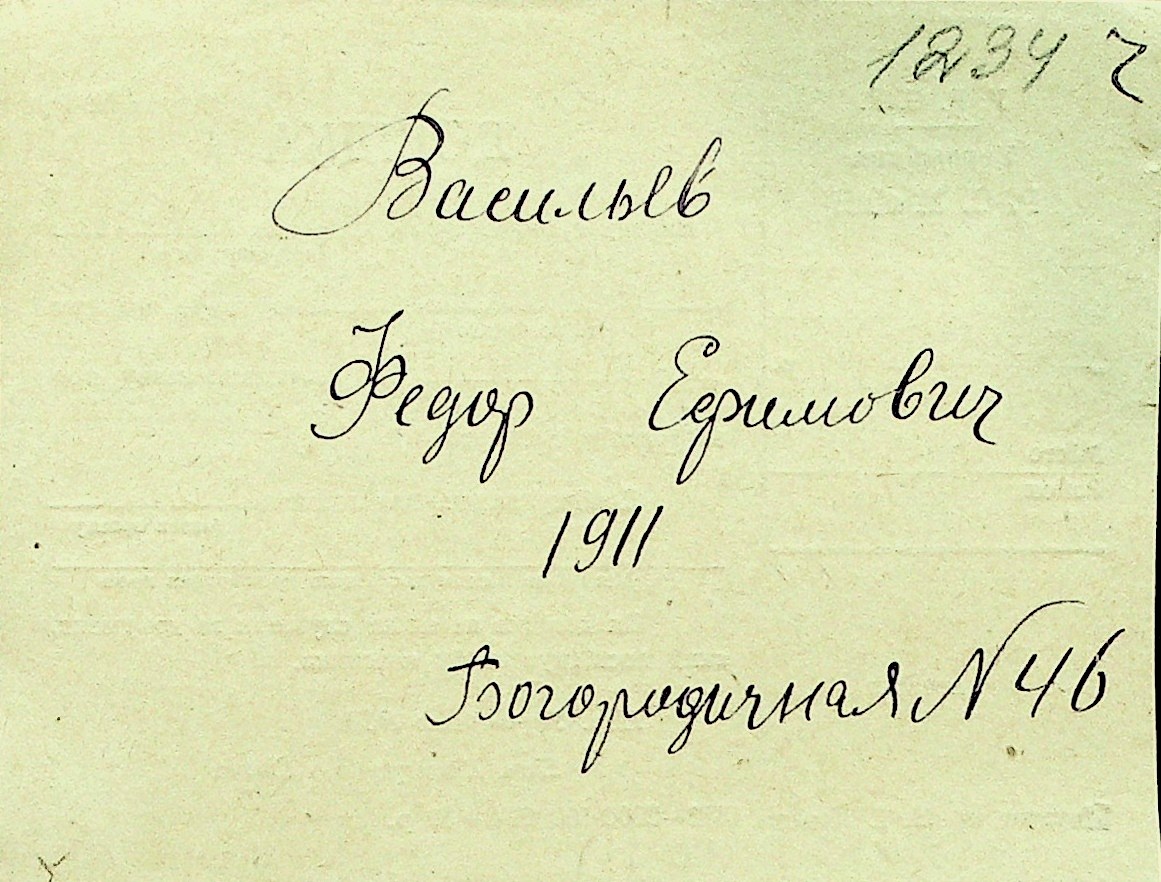 1234 ч
Васильев
Федор Ефимович
1911
Богородичная N 46